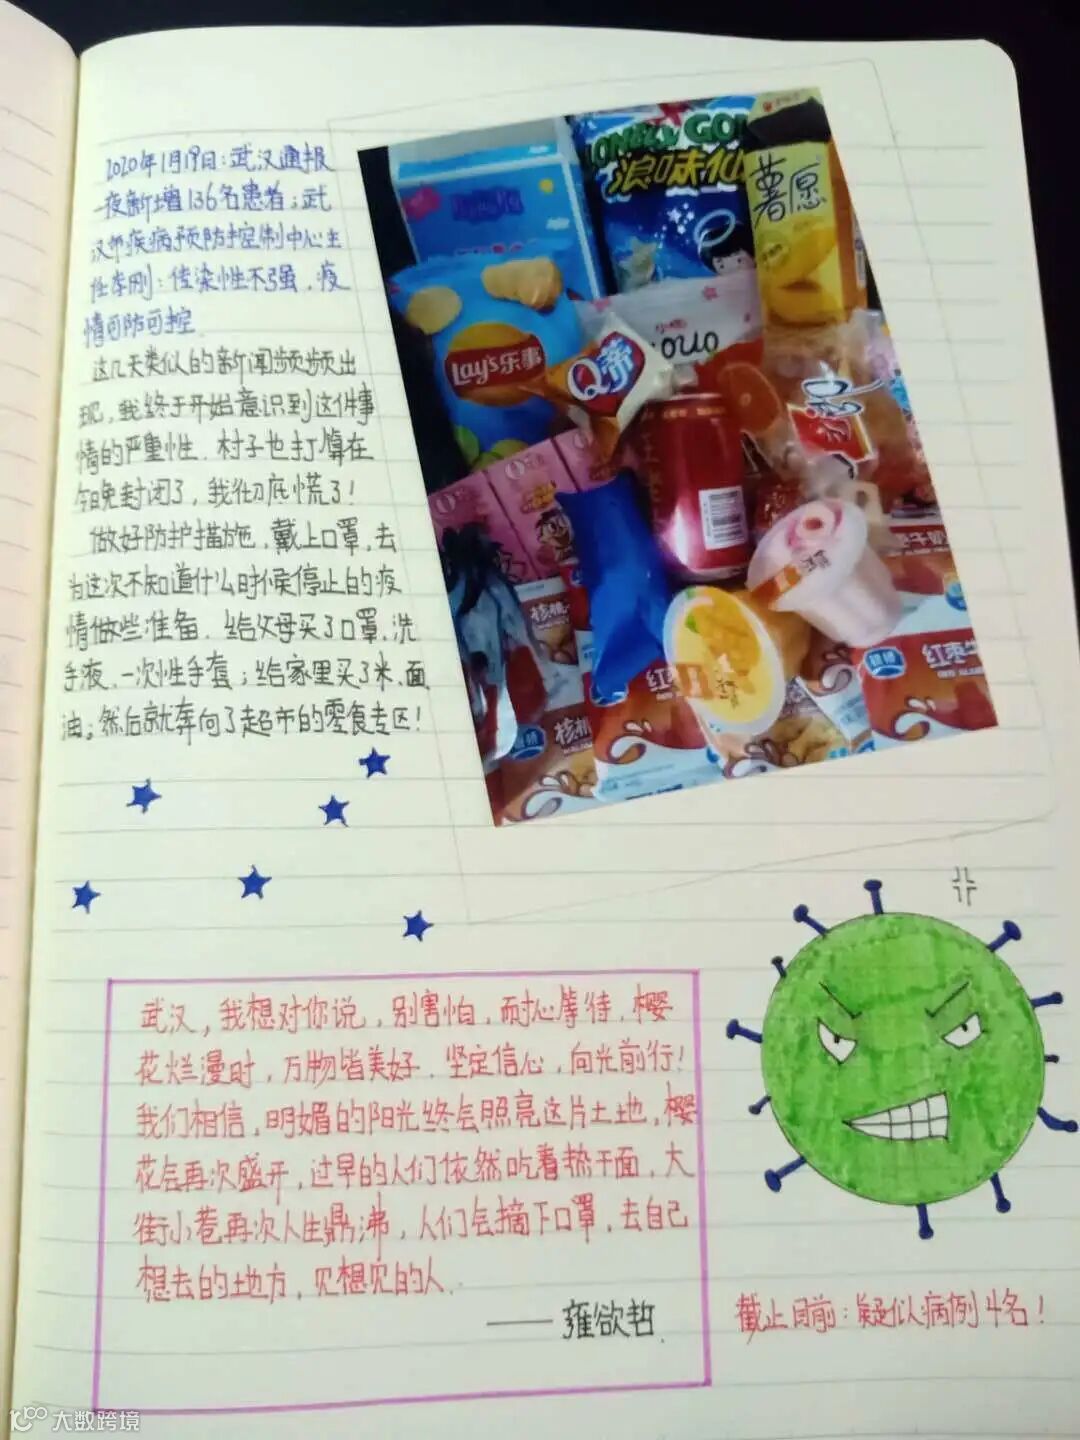 2020年1月19日:武汉通报
一夜新增136名患者;武
汉市疾病预防控制中心主
任李刚:传染性不强,疫
情可防可控.
这几天类似的新闻频频出
现,我终于开始意识到这件事
情的严重性.村子也打算在
今晚封闭了,我彻底慌了!
做好防护措施,戴上口罩,去
为这次不知道什么时候停止的疫
情做些准备.给父母买了口罩,洗
手液,一次性手套;给家里买了米,面,
油;然后就奔向了超市的零食专区!
LONELY GOD
浪味仙
薯愿
Lay's乐事
Q蒂
核桃
红枣牛
红枣
银桥
核桃
银桥
武汉,我想对你说,别害怕,耐心等待,樱
花烂漫时,万物皆美好.坚定信心,向光前行!
我们相信,明媚的阳光终会照亮这片土地,樱
花会再次盛开,过早的人们依然吃着热干面,大
街小巷再次人生鼎沸,人们会摘下口罩,去自己
想去的地方,见想见的人.
——雍欲哲.
截止目前:疑似病例4名!
大数跨境